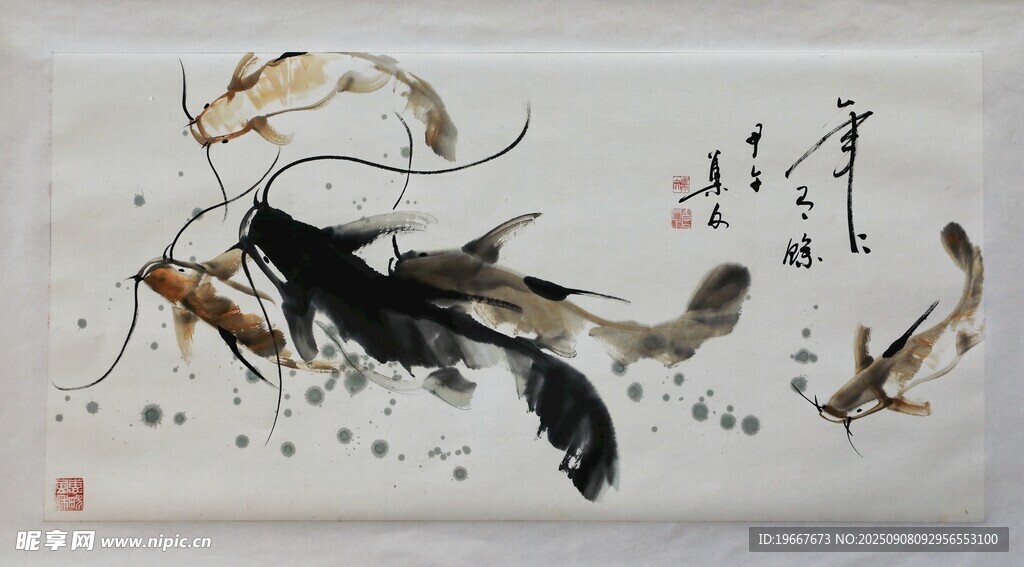 年々
有餘
甲午
集
昵享网 www.nipic.cn
ID:19667673 NO:20250908092956553100